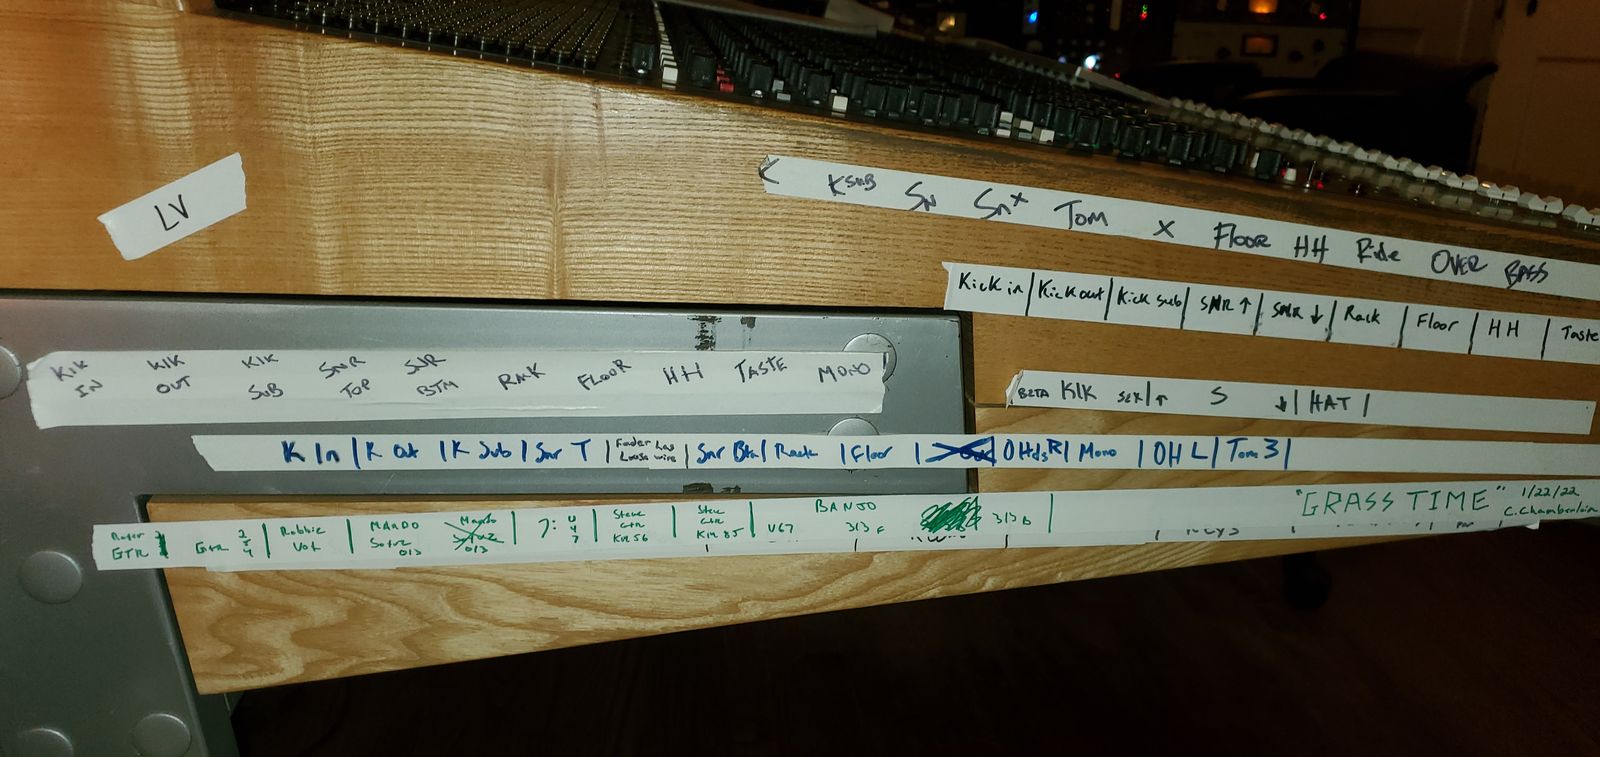 LV
K KSUB SN Sn x TOM x FLOOR HH Ride OVER BASS
Kick in | Kick out | Kick sub | SNR ↑ | SNR ↓ | Rack | Floor | HH | Taste
KIK IN KIK OUT KIK SUB SNR TOP SNR BTM RACK FLOOR HH TASTE MONO
BETA KIK ↑ S ↓ | HAT |
K In | K Out | K Sub | Snr T | Fader has Loose wire | Snr Btm | Rack | Floor | OHds R | Mono | OH L | Tom 3 |
GTR Gtr 254 | Robbie Vox | MANDO 013 Mando 013 | U47 | Steve Gtr KM56 | Steve Gtr KM85 | BANJO U67 313 313 B | "GRASS TIME" 1/22/22 C.Chamberlain